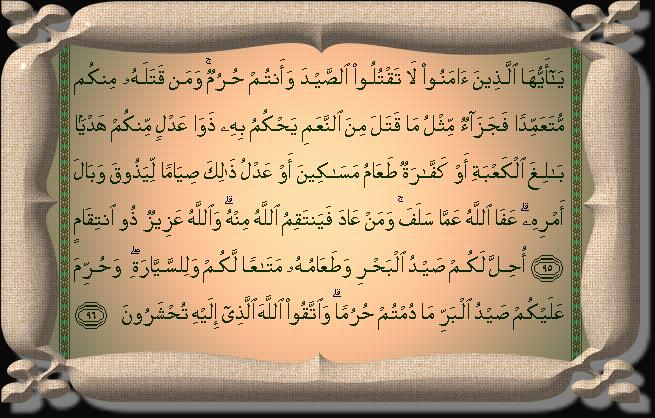 يَـٰٓأَيُّهَا ٱلَّذِينَ ءَامَنُوا۟ لَا تَقْتُلُوا۟ ٱلصَّيْدَ وَأَنتُمْ حُرُمٌ ۚ وَمَن قَتَلَهُۥ مِنكُم
مُّتَعَمِّدًا فَجَزَآءٌ مِّثْلُ مَا قَتَلَ مِنَ ٱلنَّعَمِ يَحْكُمُ بِهِۦ ذَوَا عَدْلٍ مِّنكُمْ هَدْيًۢا
بَـٰلِغَ ٱلْكَعْبَةِ أَوْ كَفَّـٰرَةٌ طَعَامُ مَسَـٰكِينَ أَوْ عَدْلُ ذَٰلِكَ صِيَامًا لِّيَذُوقَ وَبَالَ
أَمْرِهِۦ ۗ عَفَا ٱللَّهُ عَمَّا سَلَفَ ۚ وَمَنْ عَادَ فَيَنتَقِمُ ٱللَّهُ مِنْهُ ۗ وَٱللَّهُ عَزِيزٌ ذُو ٱنتِقَامٍ
٩٥ أُحِلَّ لَكُمْ صَيْدُ ٱلْبَحْرِ وَطَعَامُهُۥ مَتَـٰعًا لَّكُمْ وَلِلسَّيَّارَةِ ۖ وَحُرِّمَ
عَلَيْكُمْ صَيْدُ ٱلْبَرِّ مَا دُمْتُمْ حُرُمًا ۗ وَٱتَّقُوا۟ ٱللَّهَ ٱلَّذِىٓ إِلَيْهِ تُحْشَرُونَ ٩٦